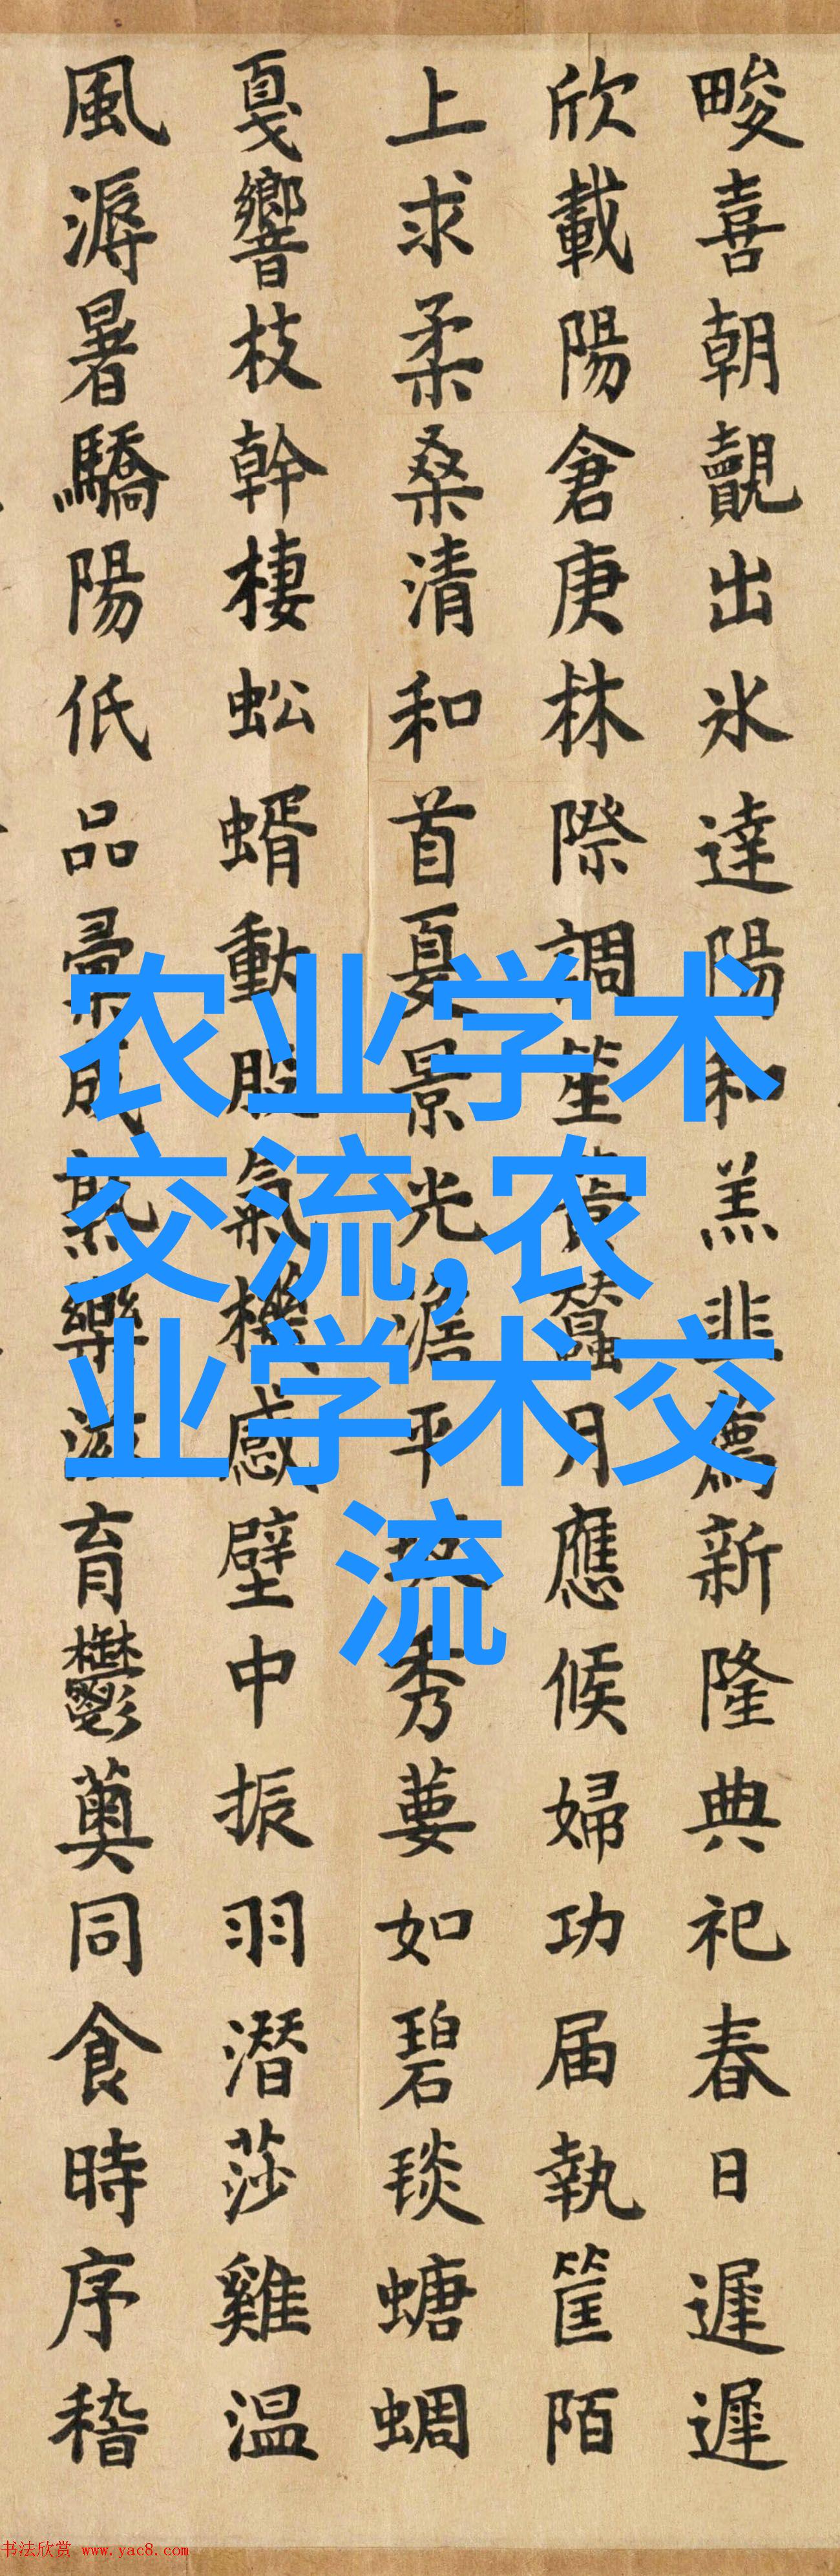 畯喜朝覿出氷達陽和羔韭薦新隆典祀春日遲遲
欣載陽倉庚林際調笙簧蠶月應候婦功届執筐陌
上求柔桑清和首夏景光澹平秀葽如碧琰螗蜩
戛響枝幹棲蚣蝑動股氣機感壁中振羽潛莎雞温
風溽暑驕陽低品彙成熟樂滋育鬱薁同食時序稽
农业学术
交流,农
业学术交
流
书法欣赏 www.yac8.com